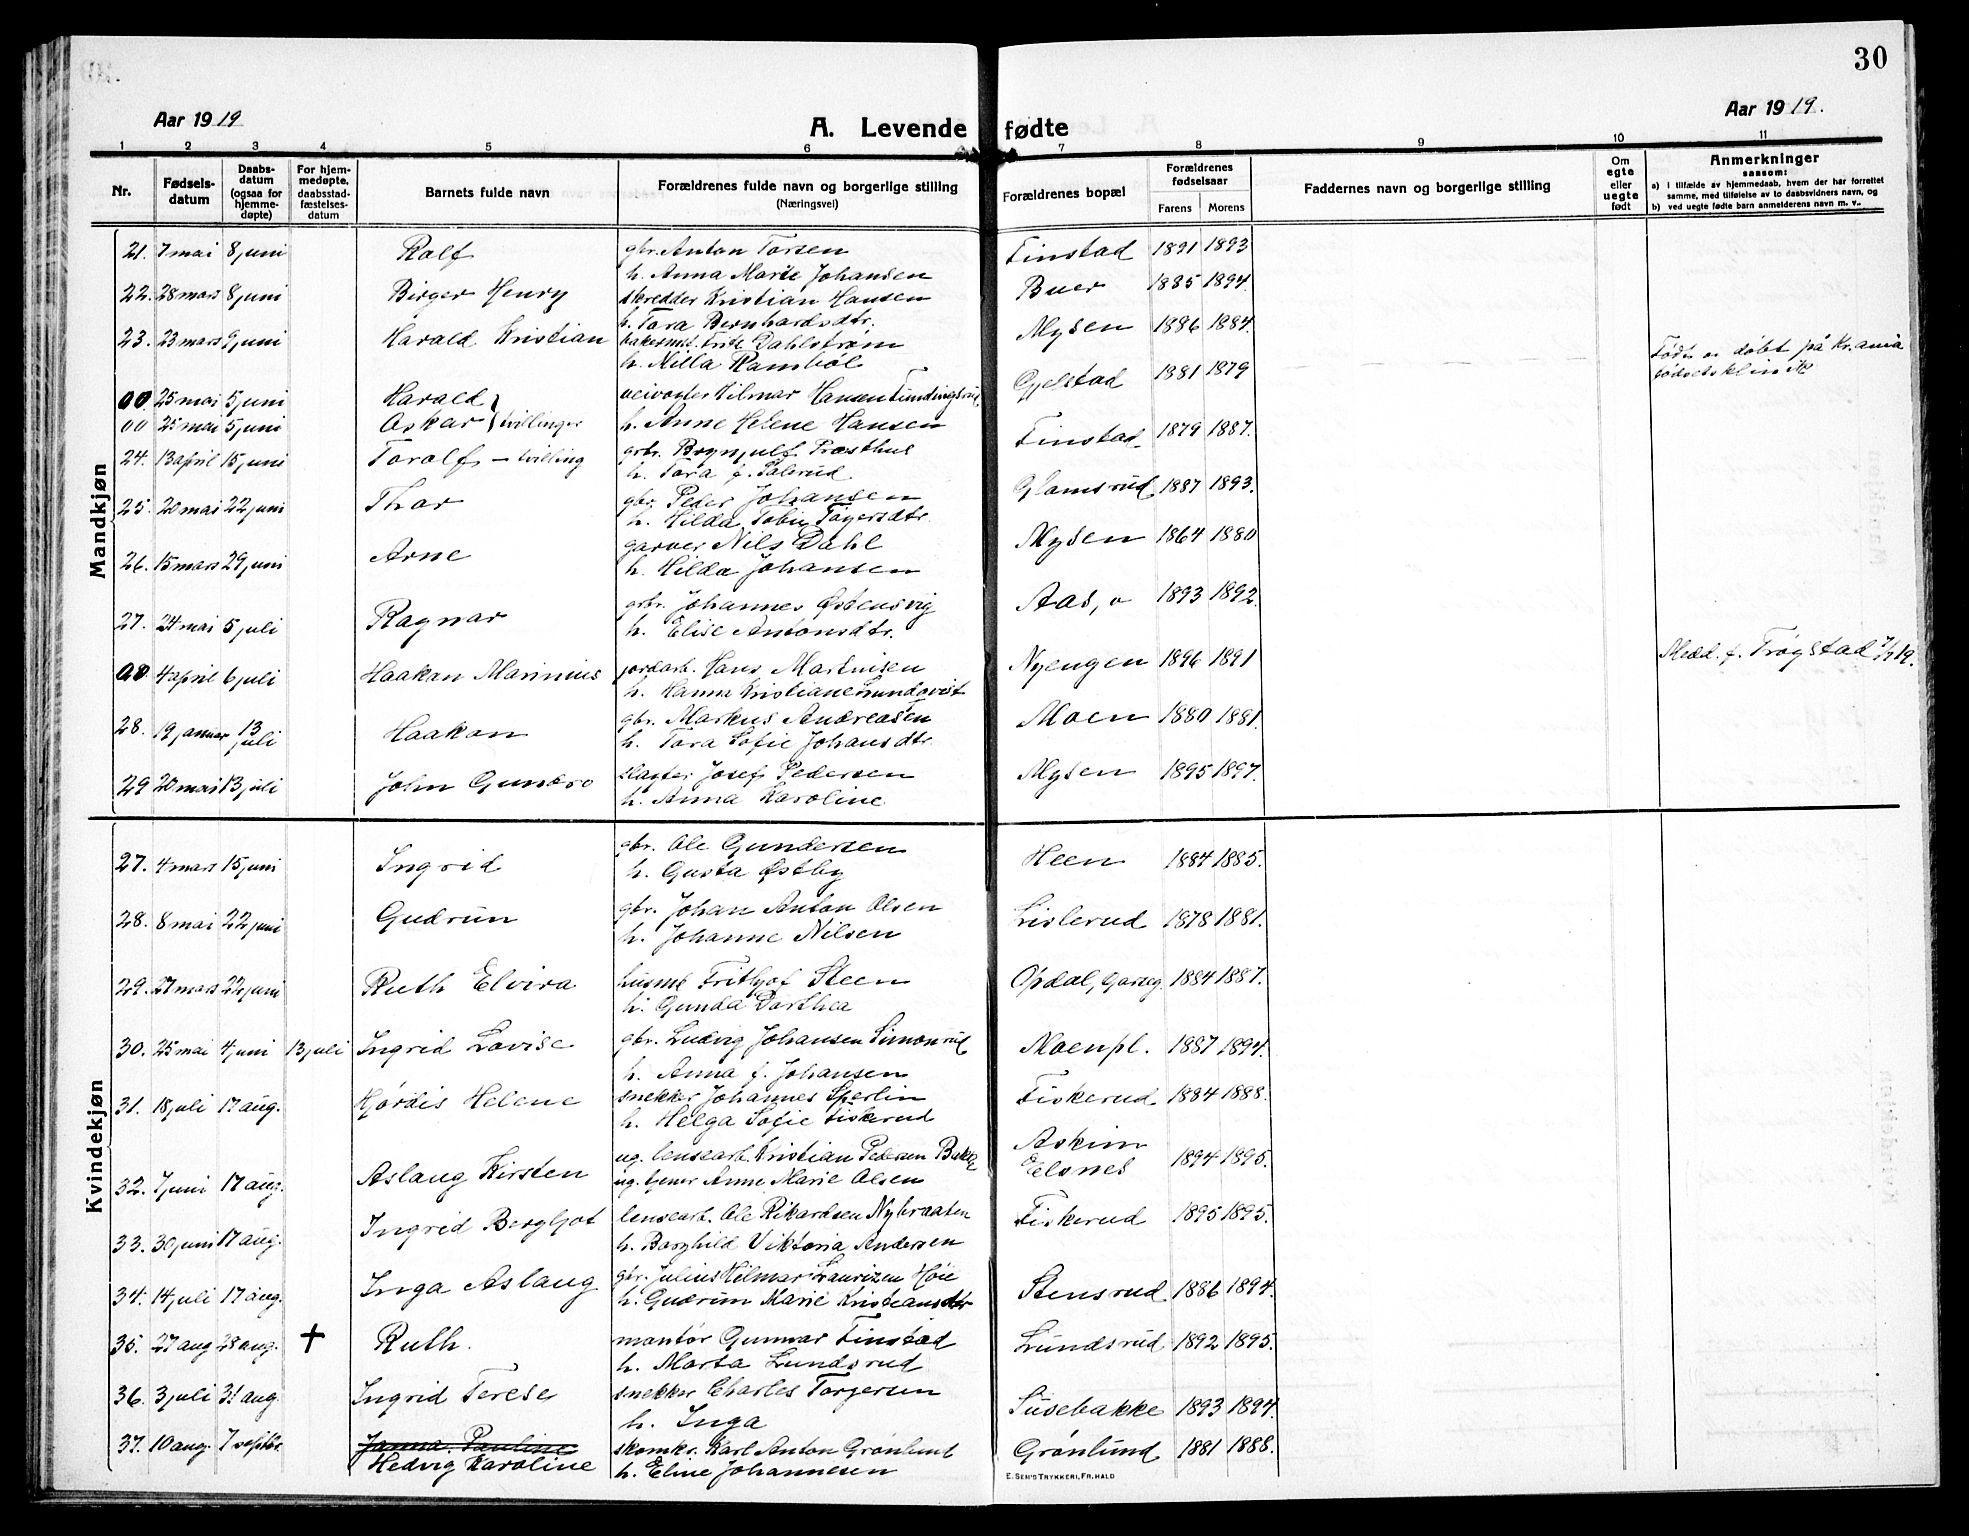 30
Aar 1919
A. Levende fødte
Aar 1919.
1 2 3 4 5 6 7 8 9 10 11
Nr. | Fødsels-datum | Daabs-datum (ogsaa for hjemme-døpte) | For hjem-medøpte, daabsstad-fæstelses-datum | Barnets fulde navn | Forældrenes fulde navn og borgerlige stilling (Næringsvei) | Forældrenes bopæl | Forældrenes fødselsaar Farens Morens | Faddernes navn og borgerlige stilling | Om egte eller uegte født | Anmerkninger saasom: a) i tilfælde av hjemmedaab, hvem der har forrettet samme, med tilføielse av to daabsvidners navn, og b) ved uegte fødte barn anmelderens navn m. v.
Mandkjøn
21. 7 mai 8 juni Rolf gbr. Anton Torsen Finstad 1891 1893
h. Anna Marie Johansen
22. 28 mars 8 juni Birger Henry skredder Kristian Hansen Buer 1885 1894
h. Tora Bernhardsdtr.
23. 23 mars 9 juni Harald Kristian bakerms. Frits Dahlstrøm Mysen 1886 1884.
h. Milla Ramhøl
00. 25 mai 5 juni Harald veivogter Hilmar Hansen Gjelstad 1881 1879 Født o døbt på Kr.ania fødselsklinik
00 25 mai 5 juni Askar } tvillinger h. Anne Helene Hansen
24. 13 april 15 juni Toralf – tvilling gbr. Brynjulf Præsthus Finstad 1879 1887.
h. Tora f. Salerud
25. 20 mai 22 juni Thor gbr. Peder Johansen Glomsrud 1887 1893.
h. Hilda
26. 15 mars 29 juni Arne garver Nils Dahl Mysen 1864 1880
h. Hilda Johansen
27. 24 mai 5 juli Ragnar gbr. Johannes Østensvig Aas, ø 1893 1892.
h. Elise Antonsdtr.
00 4 april 6 juli Haakon Marinius jordarb. Hans Martinsen Nyengen 1896 1891 Medd. f. Trøgstad 7/7 19.
h. Hanna Kristiane Lundqvist
28. 19 januar 13 juli Haakon gbr. Markus Andreasen Moen 1880 1881.
h. Tora Sofie Johansdtr.
29 20 mai 13 juli John Gunero slagter Josef Pedersen Mysen 1895 1897.
h. Anna Karoline
Kvindekjøn
27. 4 mars 15 juni Ingrid gbr. Ole Gundersen Heen 1884 1885.
h. Gusta Østby
28. 8 mai 22 juni Gudrun gbr. Johan Anton Olsen Lislerud 1878 1881.
h. Johanne Nilsen
29. 27 mars 22 juni Ruth Elvira husmd Frithjof Steen Opdal, 1884 1887.
h. Gunda Dorthea
30. 25 mai 4 juni 13 juli Ingrid Lovise gbr. Ludvig Johansen Simonrud Moenpl. 1887 1894.
h. Anna f. Johansen
31. 18 juli 17 aug. Hjørdis Helene snekker Johannes Sperlin Fiskerud 1884 1888.
h. Helga Sofie Fiskerud
32. 7 juni 17 aug. Aslaug Kirsten ug. lensearb. Kristian Pedersen Bakke Askim 1894 1895.
ug. tjener Anne Marie Olsen Eidsnes
33. 30 juni 17 aug. Ingrid Bergljot lensearb. Ole Rikardsen Nybraaten Fiskerud 1895 1895.
h. Borghild Viktoria Andersen
34. 14 juli 17 aug. Inga Aslaug gbr. Julius Hilmar Lauritzen Høie Stensrud 1886 1894.
h. Gudrun Marie Kristiansdtr
35. 27 aug 28 aug. † Ruth. montør Gunnar Finstad Lundsrud 1892 1895.
h. Marta Lundsrud
36. 3 juli 31 aug. Ingrid Terese snekker Charles Torgersen Susebakke 1893 1894.
h. Inga
37. 10 aug. 7 septbr. Janna Pauline skomkr. Karl Anton Grønlund Grønlund 1881 1888.
Hedvig Karoline h. Eline Johannesen
E. SEM'S TRYKKERI, FR.HALD